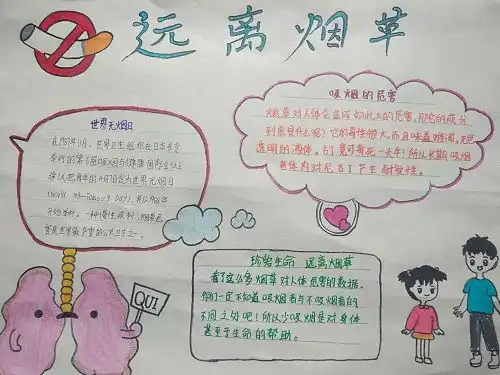 远离烟草
世界无烟日
在1987年11月,世界卫生组织在日本东京
举行的第6届吸烟与健康国际会议上
建议把每年的4月7日定为世界无烟日
(world no-Tobacco Day),并从1988年
开始执行。一种慢性
危害
吸烟的危害
烟草对人体会造成如此大的危害,那它的成分
到底是什么呢?它的毒性很大,而且味道难闻,无色
透明的液体。
毒死一头牛!所以长期吸烟
者体内对尼古丁产生耐受性。
QUI
珍爱生命 远离烟草
看了这么多烟草对人体危害的数据,
你们一定不知道吸烟者与不吸烟者的
不同之处吧!所以少吸烟是对身体
甚至于生命的帮助。